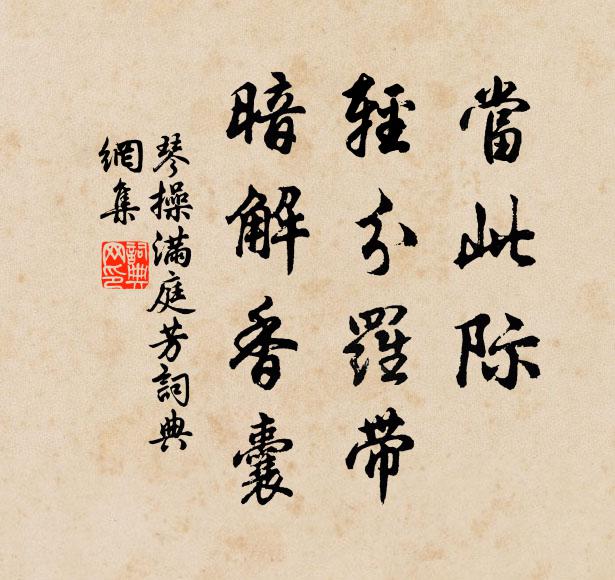 當此际
輕分羅帶
暗解香囊
琴操滿庭芳詞典
網集
詞典
网印